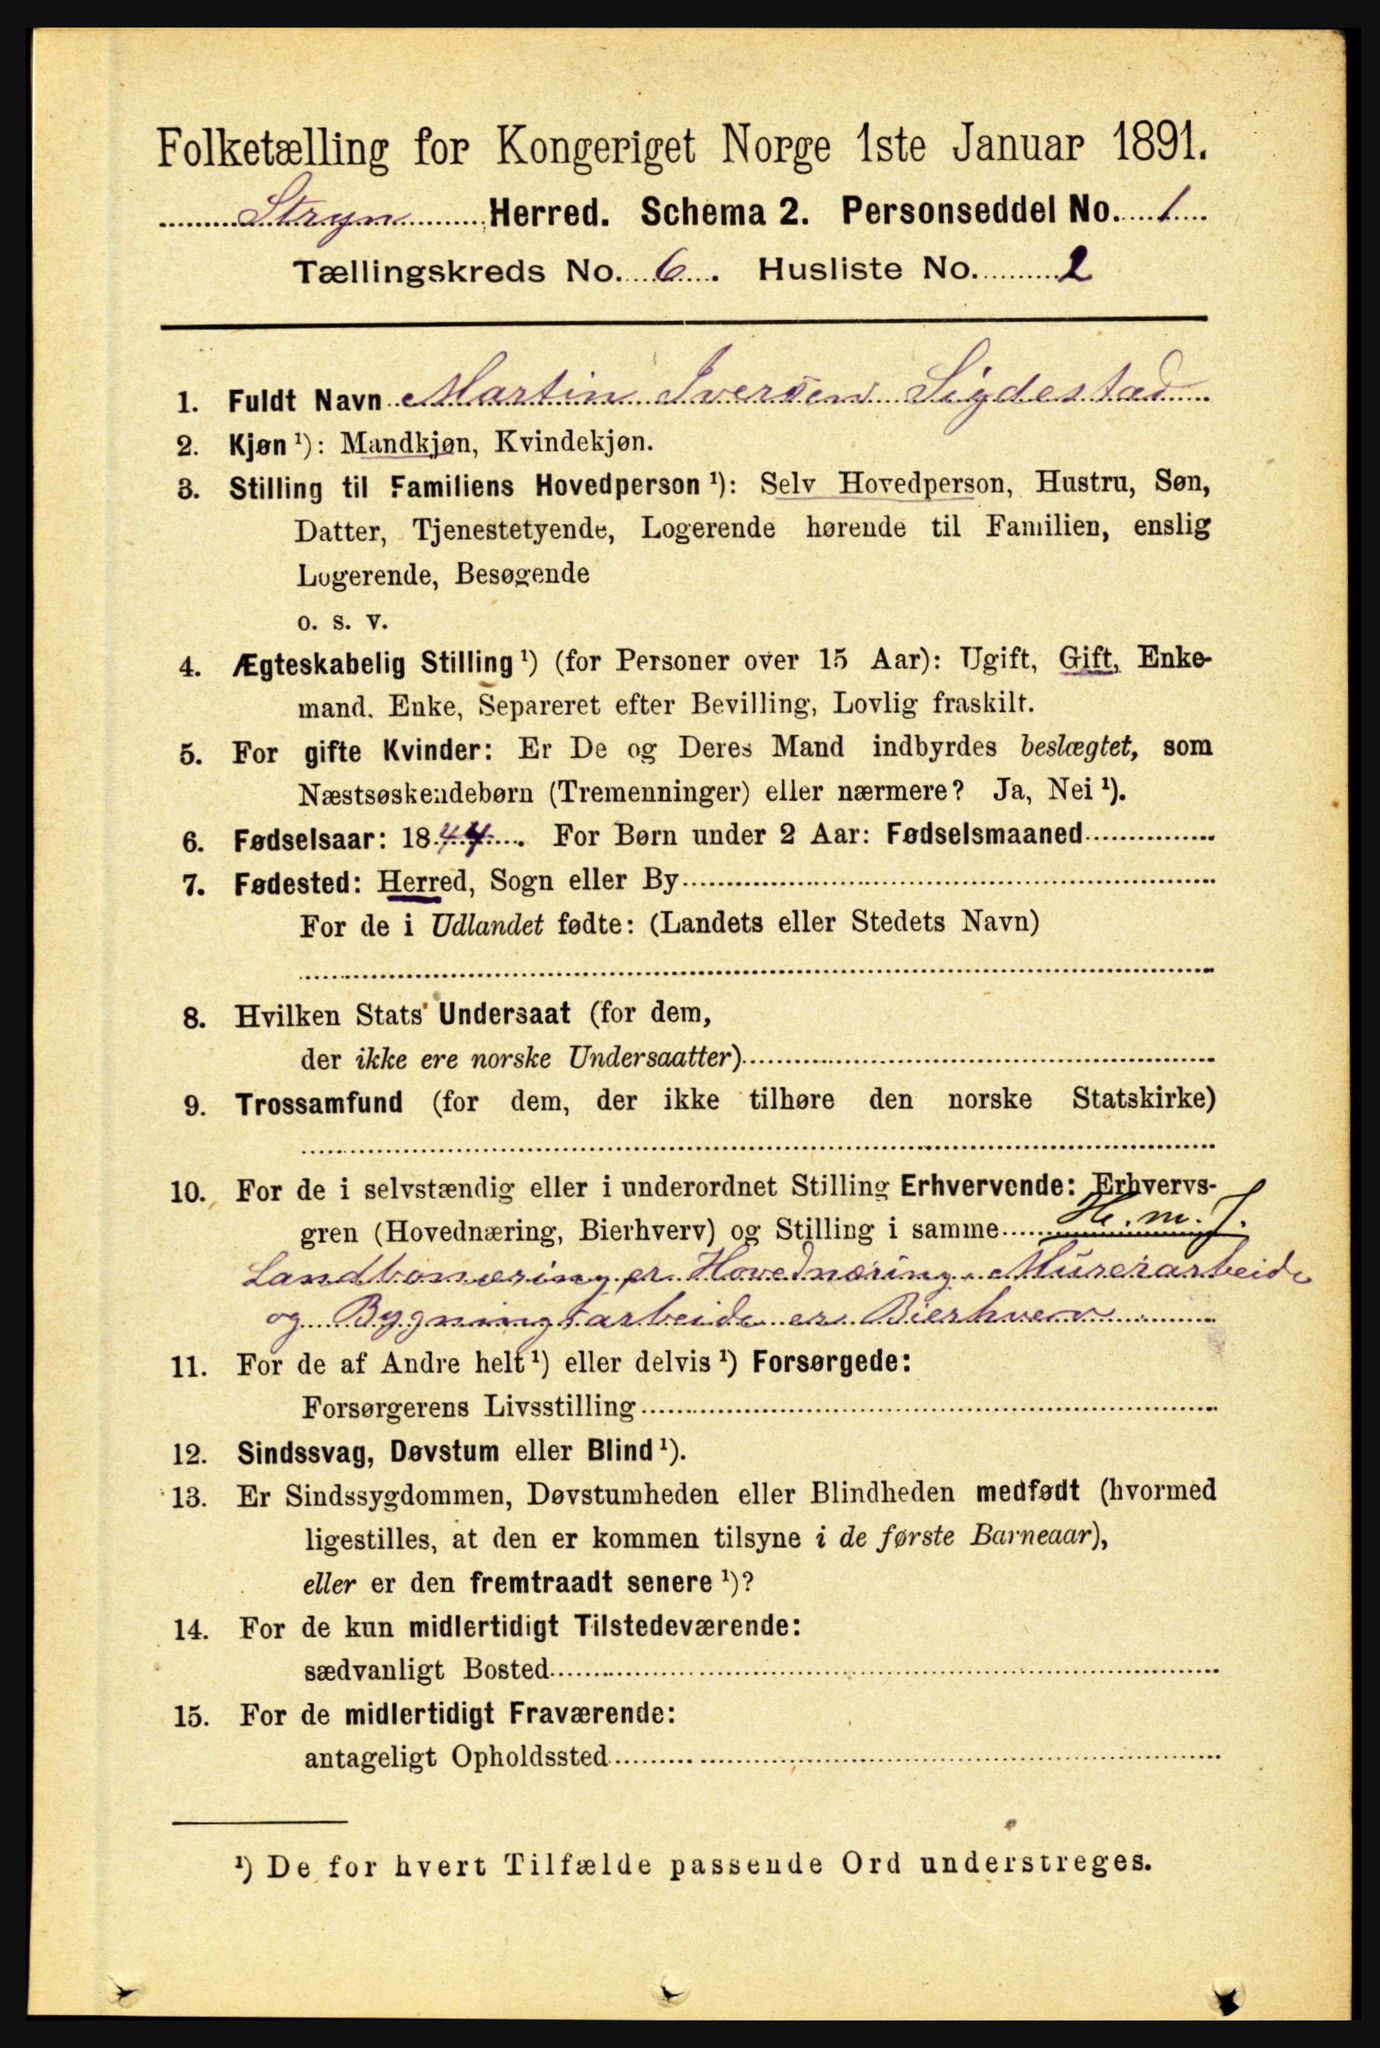 Folketælling for Kongeriget Norge 1ste Januar 1891.
Stryn Herred. Schema 2. Personseddel No. 1
Tællingskreds No. 6. Husliste No. 2
1. Fuldt Navn Martin Iversen Sigdestad
2. Kjøn ¹): Mandkjøn, Kvindekjøn.
3. Stilling til Familiens Hovedperson ¹): Selv Hovedperson, Hustru, Søn,
Datter, Tjenestetyende, Logerende hørende til Familien, enslig
Logerende, Besøgende
o. s. v.
4. Ægteskabelig Stilling ¹) (for Personer over 15 Aar): Ugift, Gift, Enke-
mand. Enke, Separeret efter Bevilling, Lovlig fraskilt.
5. For gifte Kvinder: Er De og Deres Mand indbyrdes beslægtet, som
Næstsøskendebørn (Tremenninger) eller nærmere? Ja, Nei ¹).
6. Fødselsaar: 1844. For Børn under 2 Aar: Fødselsmaaned
7. Fødested: Herred, Sogn eller By
For de i Udlandet fødte: (Landets eller Stedets Navn)
8. Hvilken Stats Undersaat (for dem,
der ikke ere norske Undersaatter)
9. Trossamfund (for dem, der ikke tilhøre den norske Statskirke)
10. For de i selvstændig eller i underordnet Stilling Erhvervende: Erhvervs-
gren (Hovednæring, Bierhverv) og Stilling i samme H. m. J.
Landbonæring er Hovednæring. Murerarbeide
og Bygningsarbeide er Bierhverv
11. For de af Andre helt ¹) eller delvis ¹) Forsørgede:
Forsørgerens Livsstilling
12. Sindssvag, Døvstum eller Blind ¹).
13. Er Sindssygdommen, Døvstumheden eller Blindheden medfødt (hvormed
ligestilles, at den er kommen tilsyne i de første Barneaar),
eller er den fremtraadt senere ¹)?
14. For de kun midlertidigt Tilstedeværende:
sædvanligt Bosted
15. For de midlertidigt Fraværende:
antageligt Opholdssted
¹) De for hvert Tilfælde passende Ord understreges.